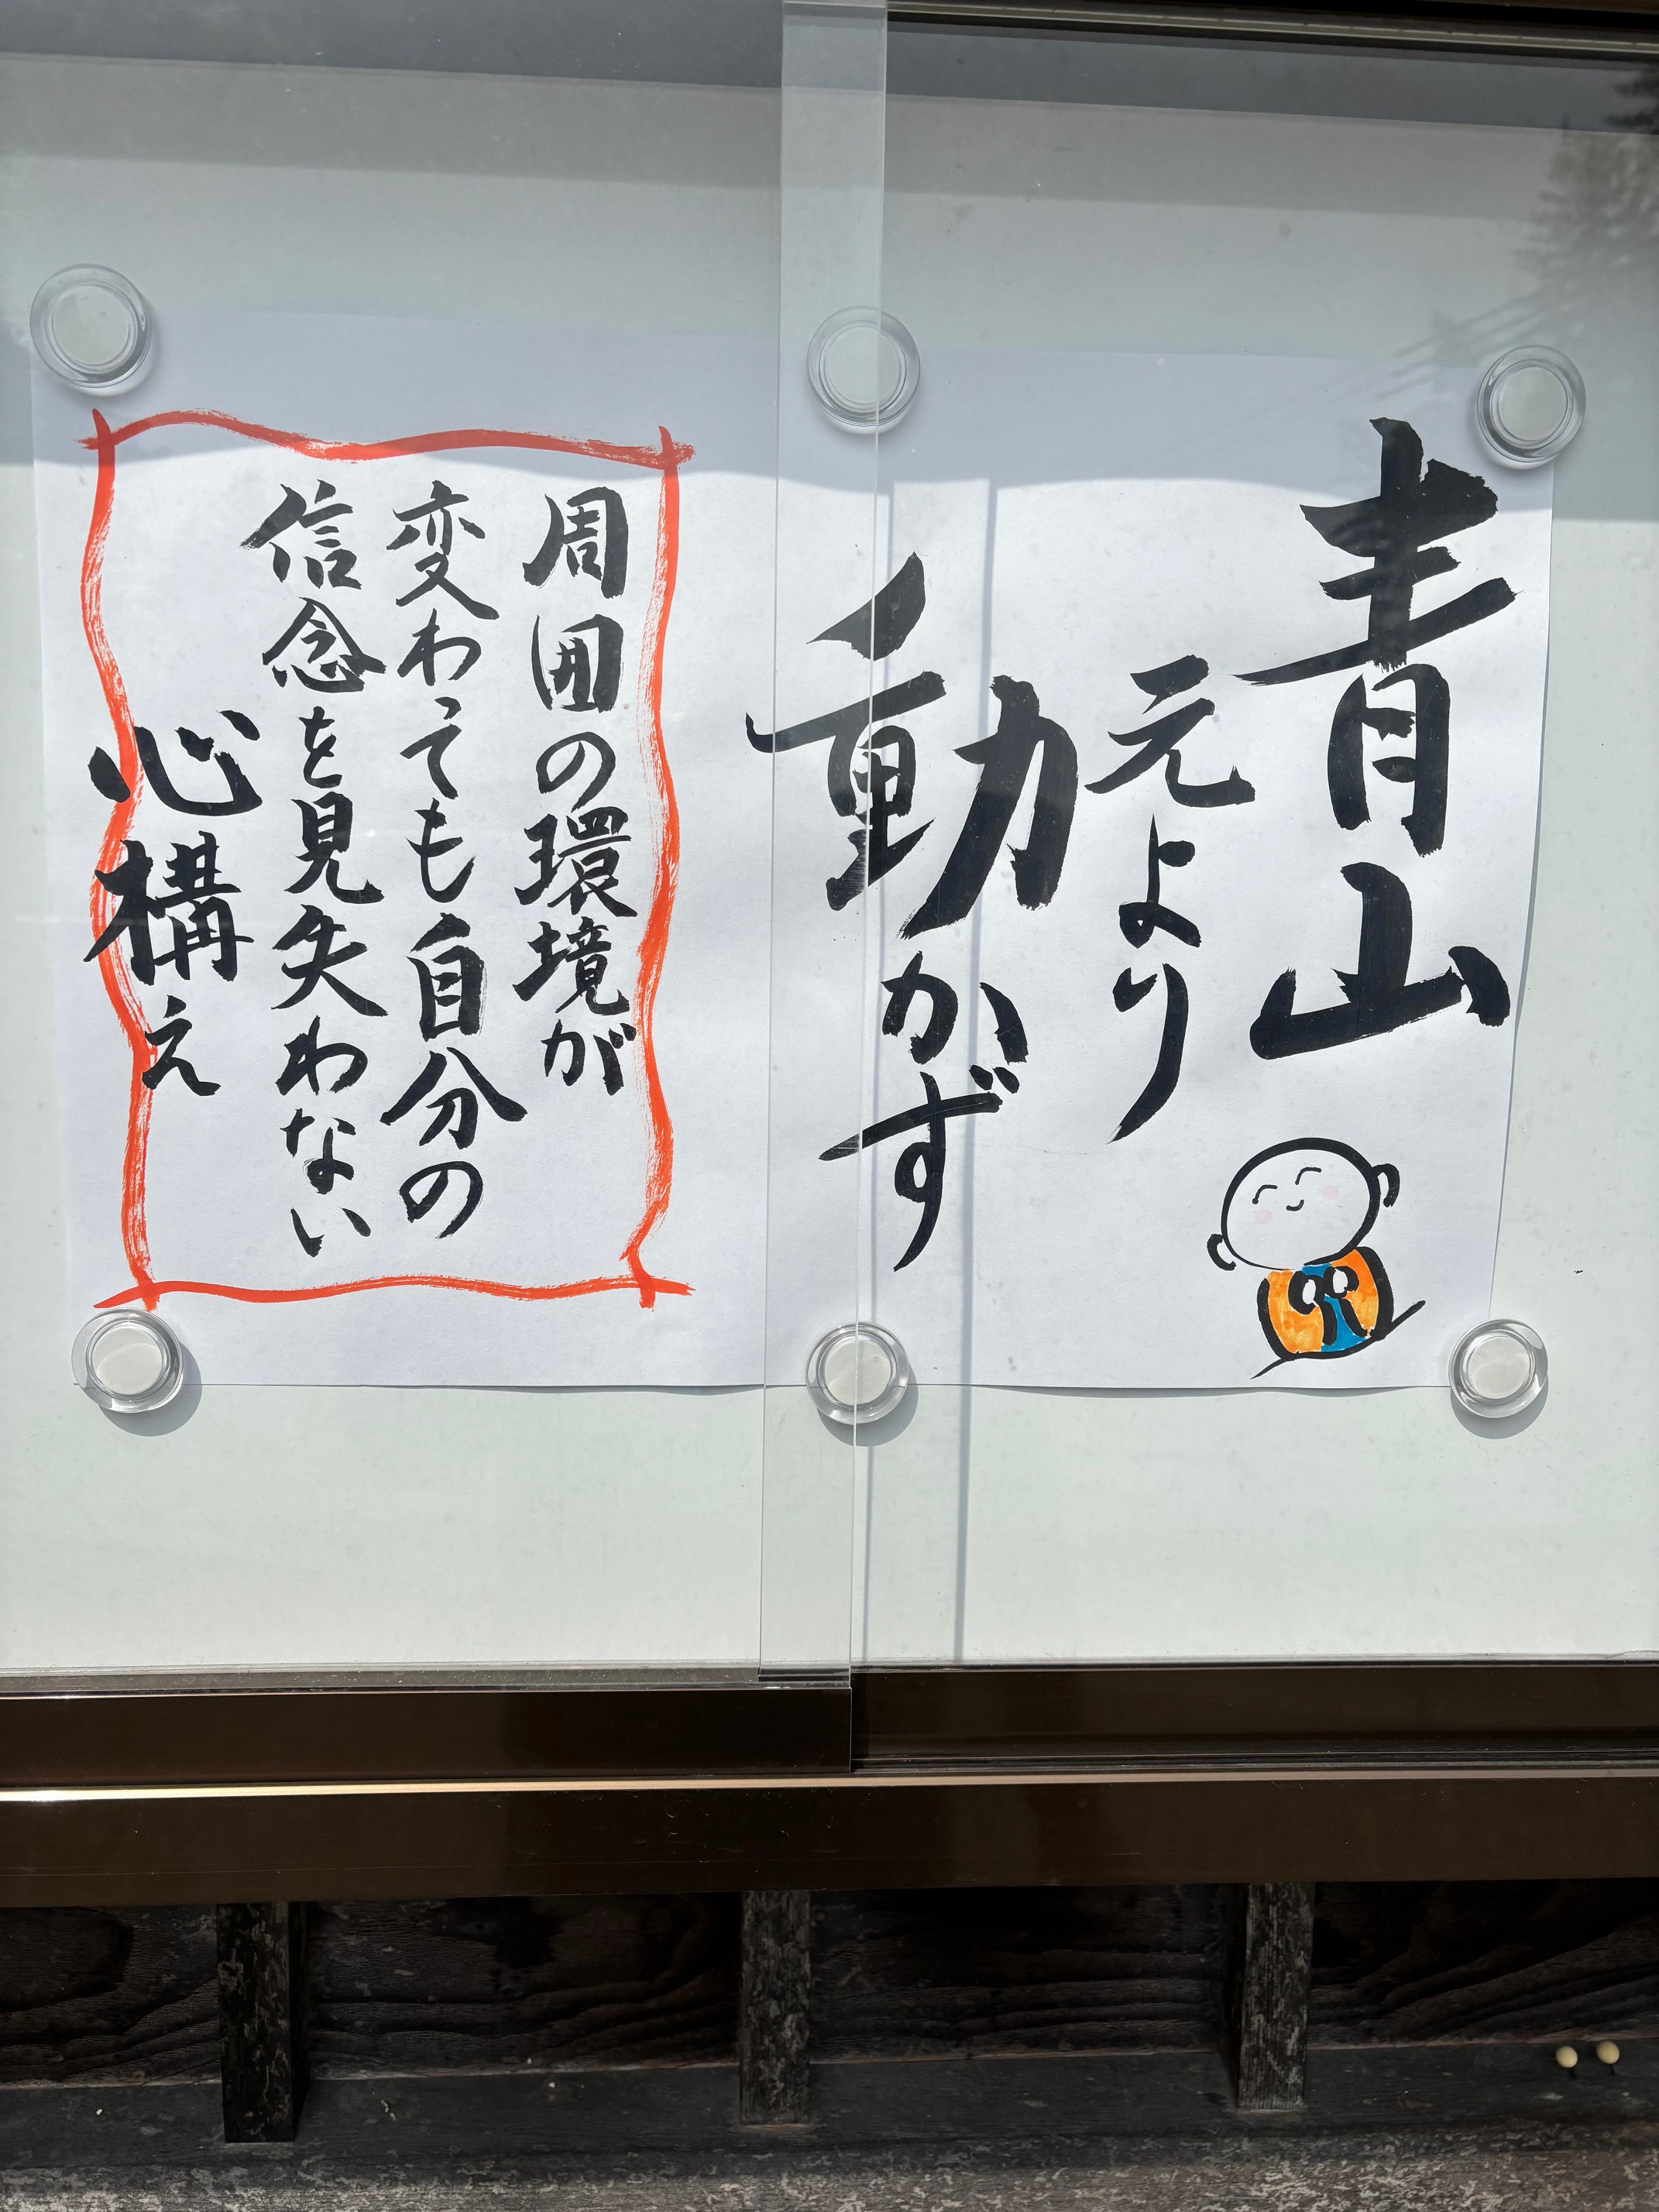 青山
元より
動かず
周囲の環境が
変わっても自分の
信念を見失わない
心構え